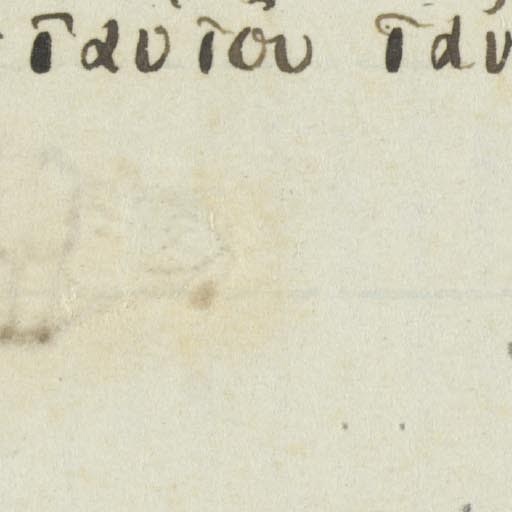 ταυτου ταυ